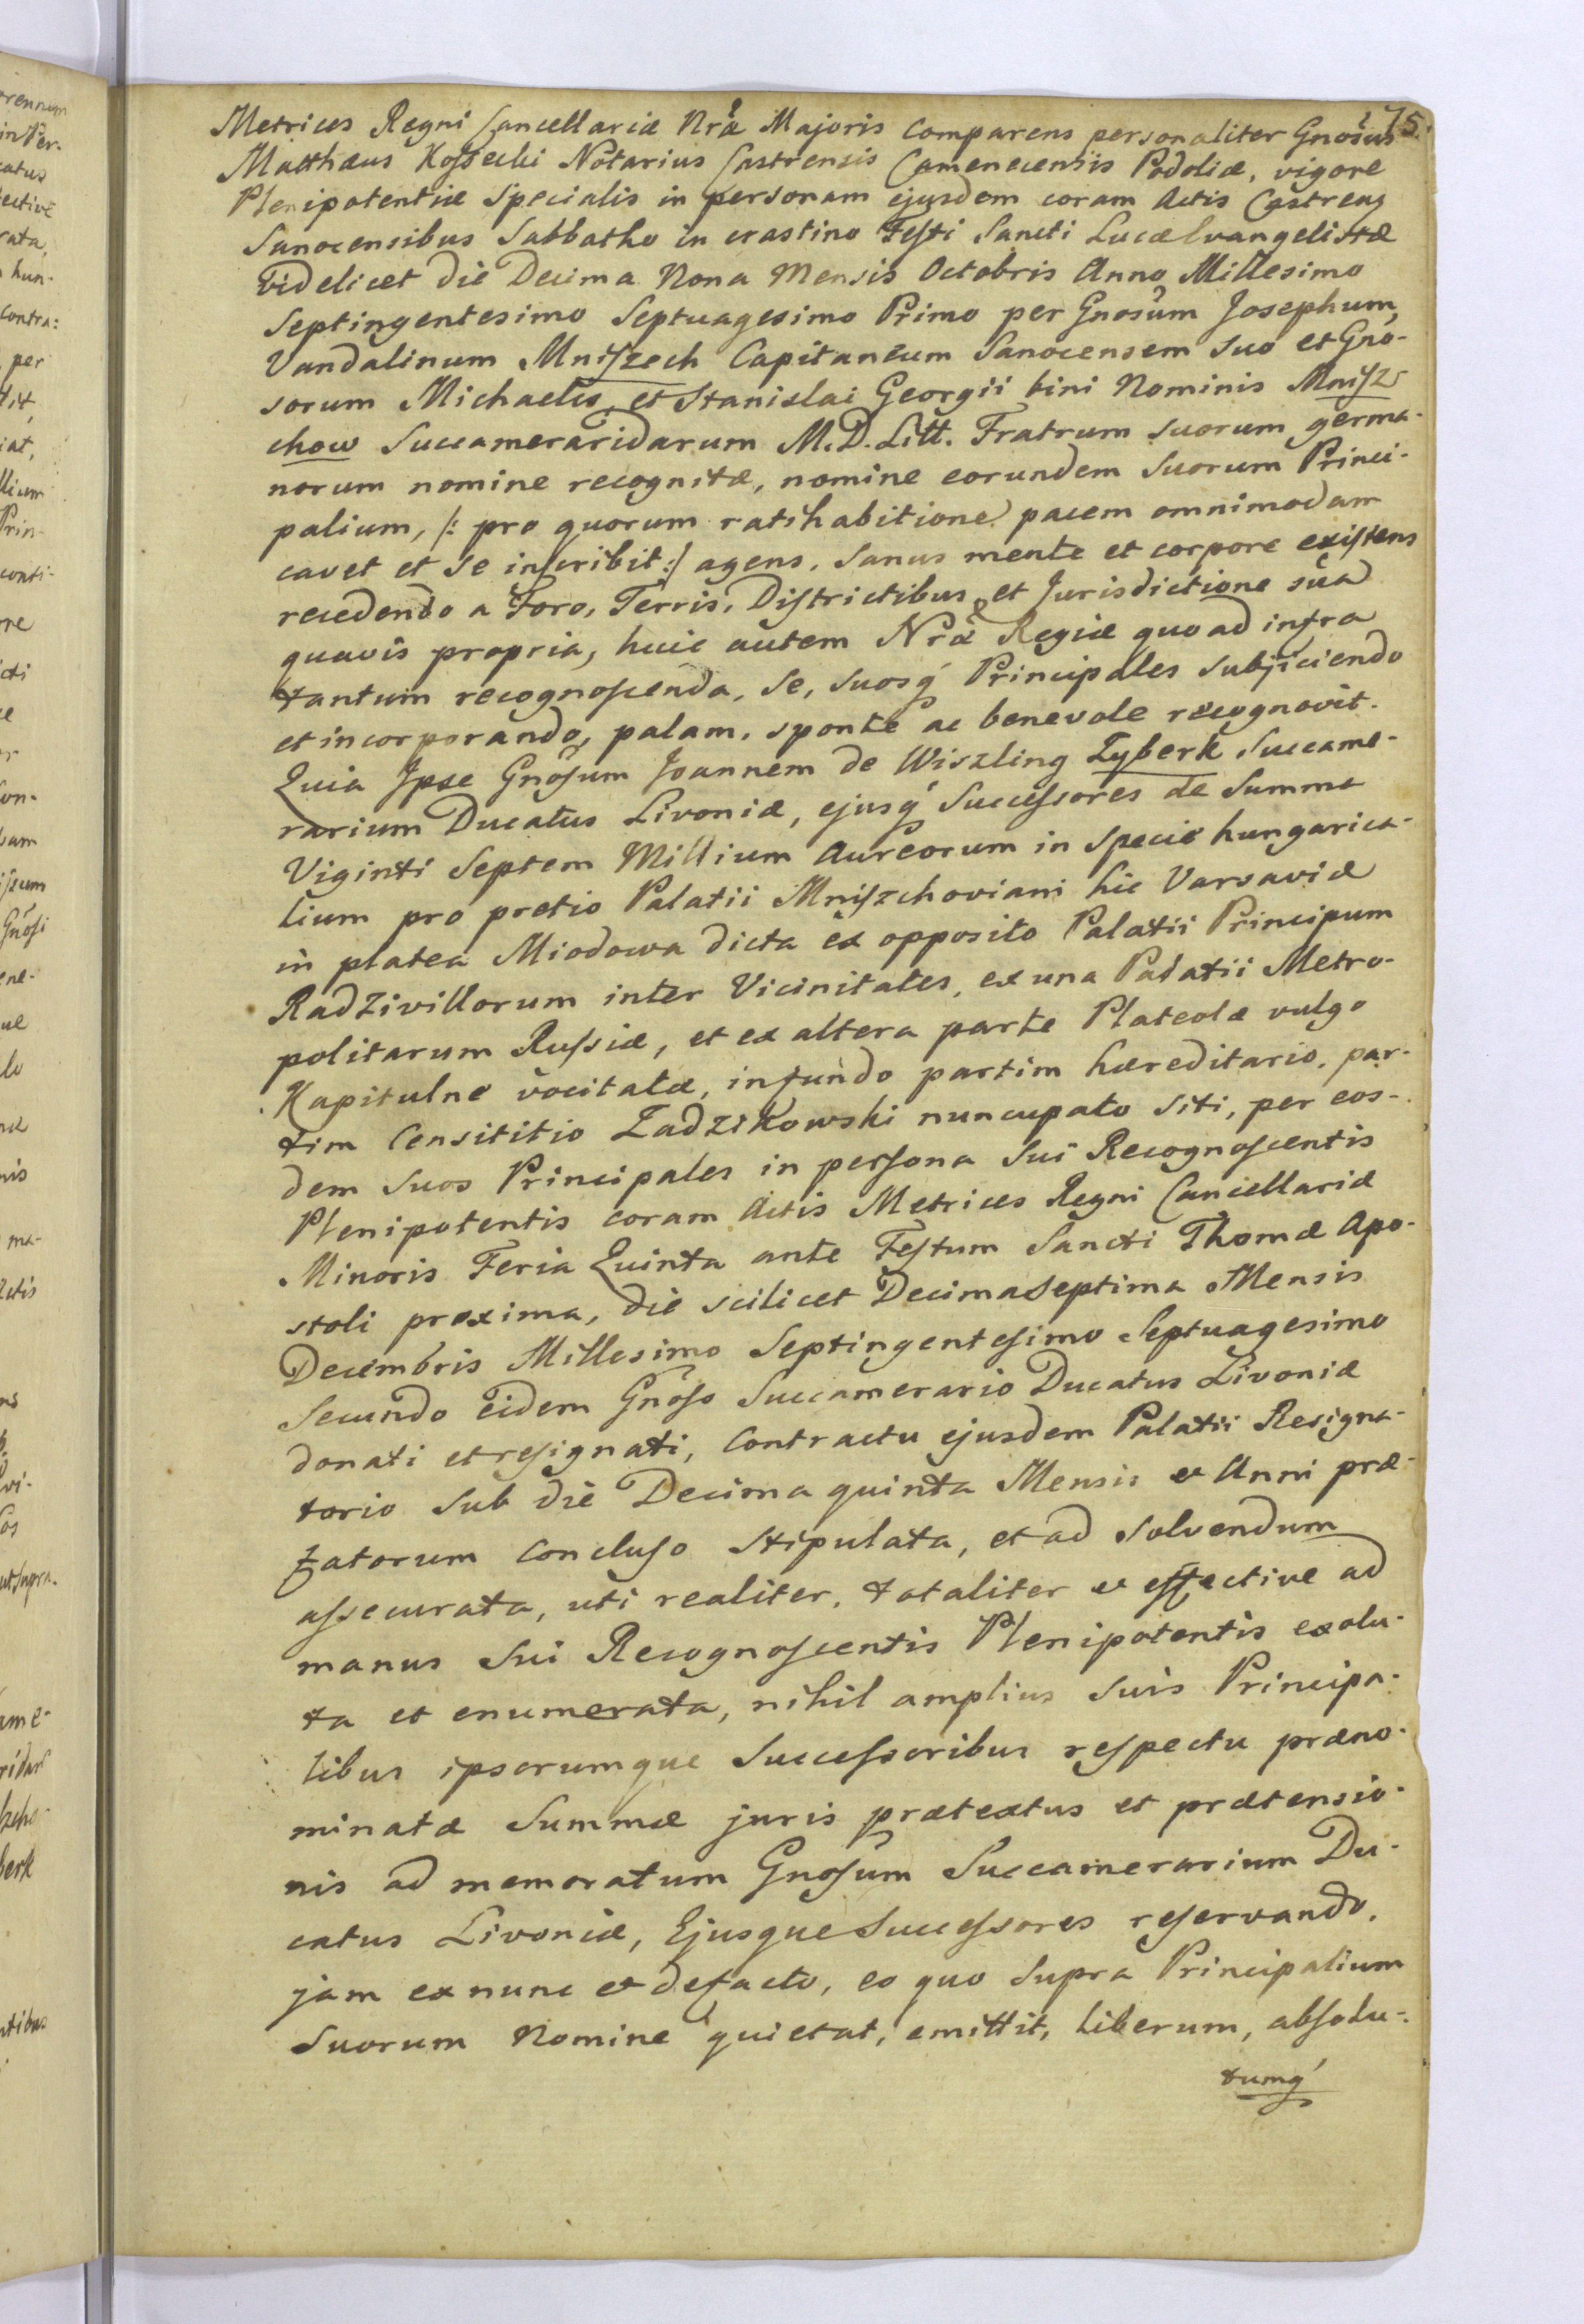 75.
Metrices Regni Cancellariæ Nræ Majoris Comparens personaliter Gnosus
Matthæus Kossecki Notarius Castrensis Camenecensis Podoliæ, vigore
Plenipotentiæ Specialis in personam ejusdem coram Actis Castrens
Sanocensibus Sabbatho in crastino Festi Sancti Lucæ Evangelistæ
videlicet die Decima Nona Mensis Octobris Anno Millesimo
Septingentesimo Septuagesimo Primo per Gnosum Josephum,
Vandalinum Mniszech Capitaneum Sanocensem suo et Gno-
sorum Michaelis, et Stanislai Georgii bini Nominis Mnisz-
chow Succameraridarum M.D.Litt. Fratrum suorum germa-
norum nomine recognitæ, nomine eorundem Suorum Princi-
palium, /: pro quorum ratihabitione pacem omnimodam
cavet et se inscribit :/ agens, Sanus mente et corpore existens
recedendo a Foro, Terris, Districtibus, et Jurisdictione sua
quavis propria, huic autem Nræ Regiæ quoad infra
tantum recognoscenda, Se, suosq́ Principales subjiciendo
et incorporando, palam, sponte ac benevole recognovit.
Quia Ipse Gnosum Joannem de Wiszling Zyberk Succame-
rarium Ducatus Livoniæ, ejusq́ Successores de Summa
Viginti Septem Millium Aureorum in Specie hungarica-
lium pro pretio Palatii Mniszchoviani hic Varsaviæ
in platea Miodowa dicta ex opposito Palatii Principum
Radzivillorum inter Vicinitates, ex una Palatii Metro-
politarum Russiæ, et ex altera parte Plateolæ vulgo
Kapitulne vocitatæ, infundo partim hæreditario, par-
tim Censititio Zadzikowski nuncupato siti, per eos-
dem suos Principales in persona sui Recognoscentis
Plenipotentis coram Actis Metrices Regni Cancellariæ
Minoris Feria Quinta ante Festum Sancti Thomæ Apo-
stoli proxima, die scilicet Decimaseptima Mensis
Decembris Millesimo Septingentesimo Septuagesimo
Secundo eidem Gnoso Succamerario Ducatus Livoniæ
donati et resignati, Contractu ejusdem Palatii Resigna-
torio Sub die Decima quinta Mensis et Anni præ-
fatorum Concluso Stipulata, et ad Solvendum
assecurata, uti realiter, totaliter et effective ad
manus Sui Recognoscentis Plenipotentis exolu-
ta et enumerata, nihil amplius Suis Principa-
libus ipsorumque Successoribus respectu præno-
minatæ Summæ juris prætextus et prætensio-
nis ad memoratum Gnosum Succamerarium Du-
catus Livoniæ, Ejusque Successores reservando,
jam ex nunc et de facto, eo quo Supra Principalium
Suorum Nomine quietat, emittit, liberum, absolu-
tumq́